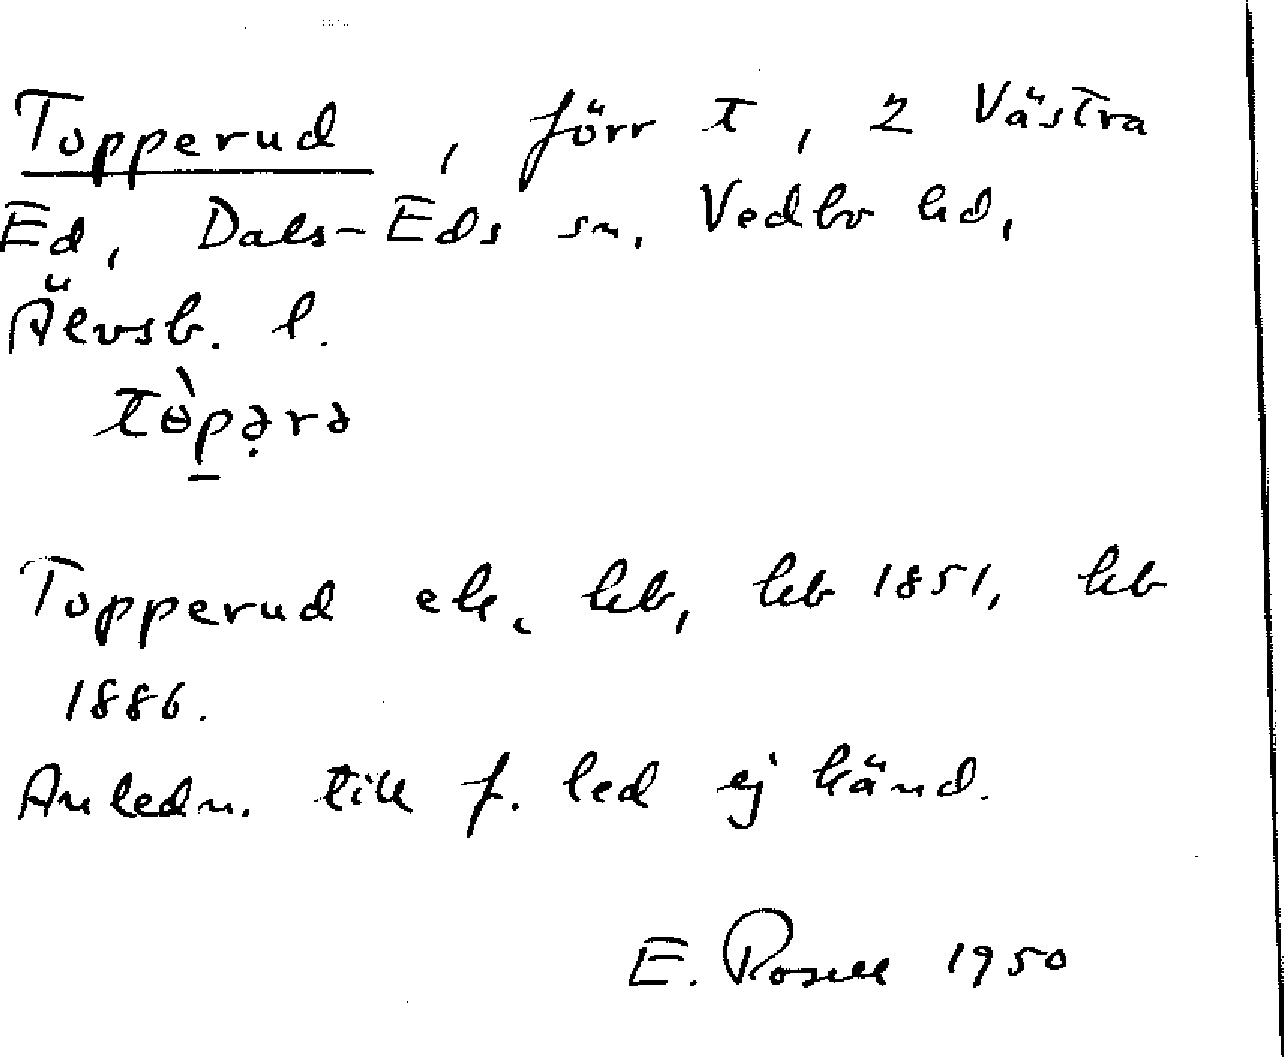 Topperud, förr t, 2 Västra
Ed, Dals-Eds sn. Vedbo hd,
Älvsb. l.
tɵ̀p̲ə̣rə
Topperud ek, hb, hb 1851, hb
1886.
Anledn. till f. led ej känd.
E. Rosell 1950